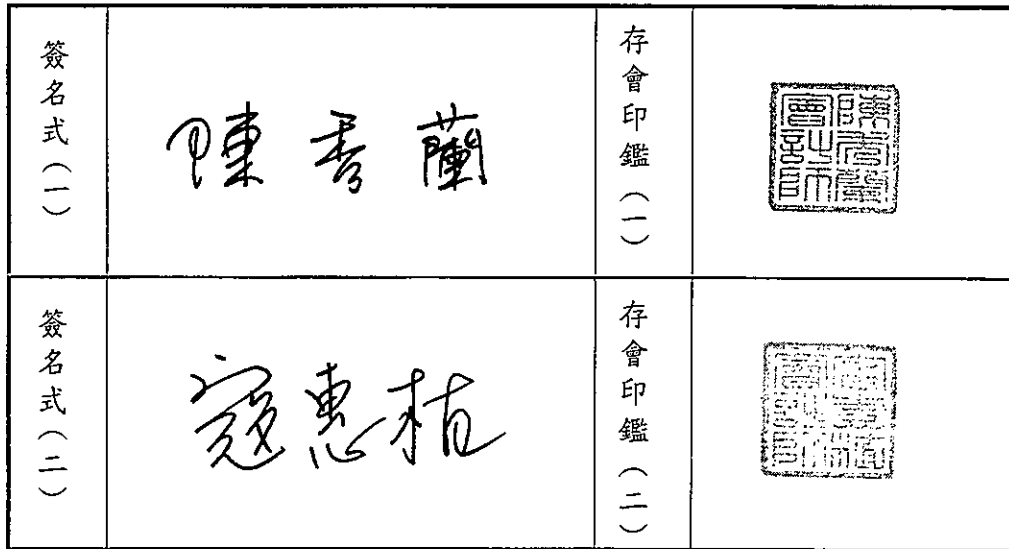 簽名式(一)
陳秀蘭
存會印鑑(一)
陳秀蘭
會計師
簽名式(二)
寇惠植
存會印鑑(二)
寇惠植
會計師